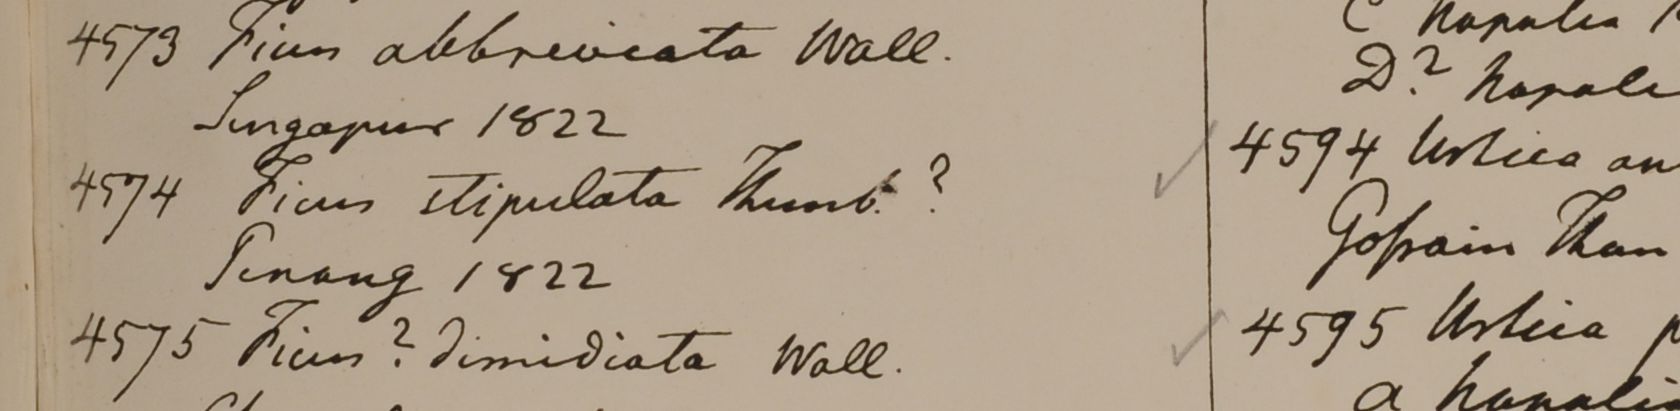 4573 Ficus abbreviata Wall.
Singapur 1822
4574 Ficus stipulata Thunb. ?
Penang 1822
4575 Ficus? dimidiata Wall.
C Napalia
D? Napale
4594 Urtica an
Gossain Than
4595 Urtica p
a Napalia